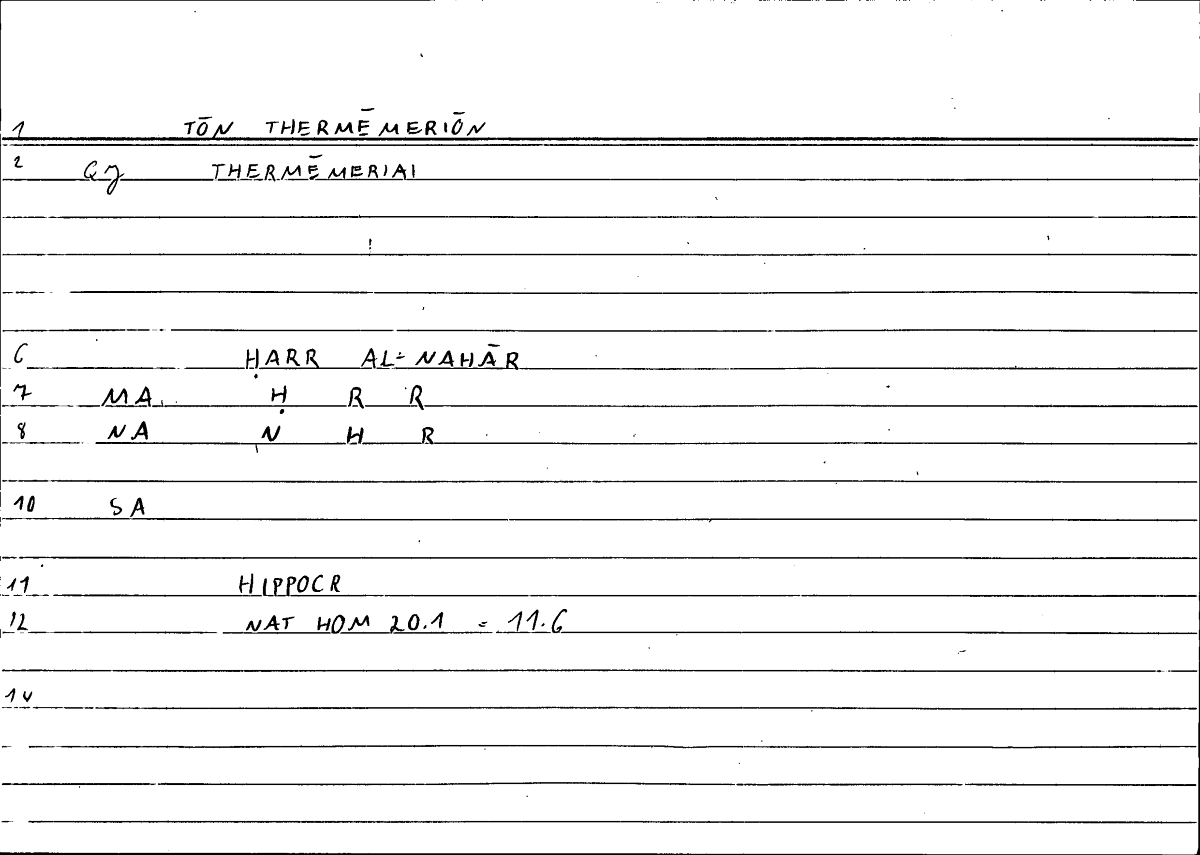 1 TŌN THERMĒMERIŌN
2 GJ THERMĒMERIAI
6 ḤARR AL-NAHĀR
7 MA Ḥ R R
8 NA N H R
10 SA
11 HIPPOCR
12 NAT HOM 20.1 = 11.6
14